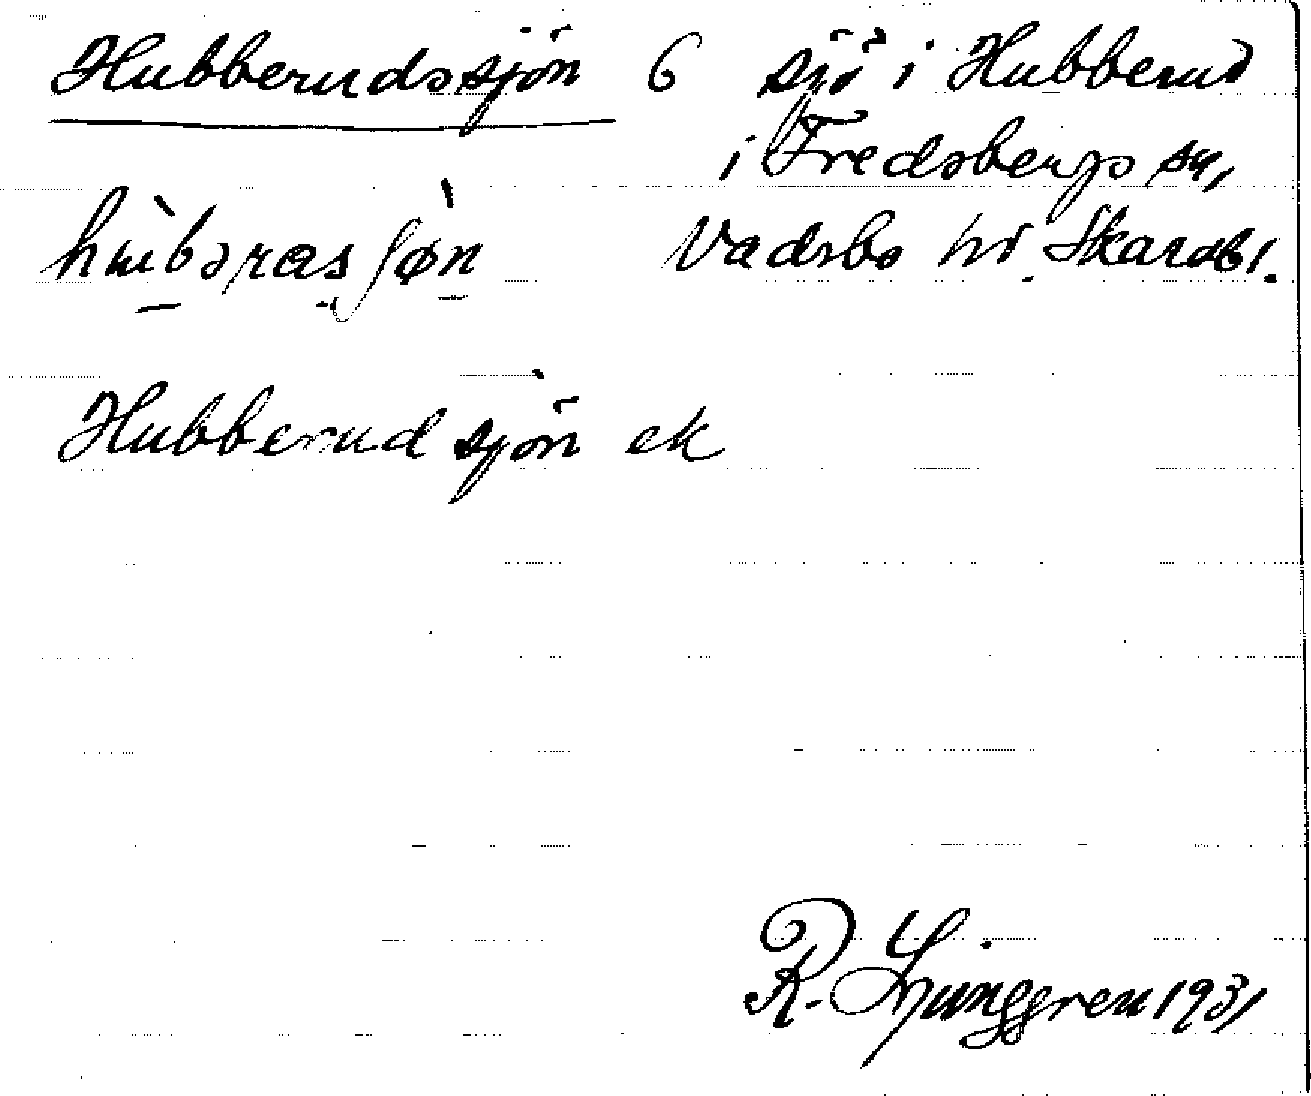 Hubberudssjön 6 sjö i Hubberud
i Fredsbergs sn,
Vadsbo hd. Skarabl.
Hubberud sjön ek
R. Ljunggren 1931